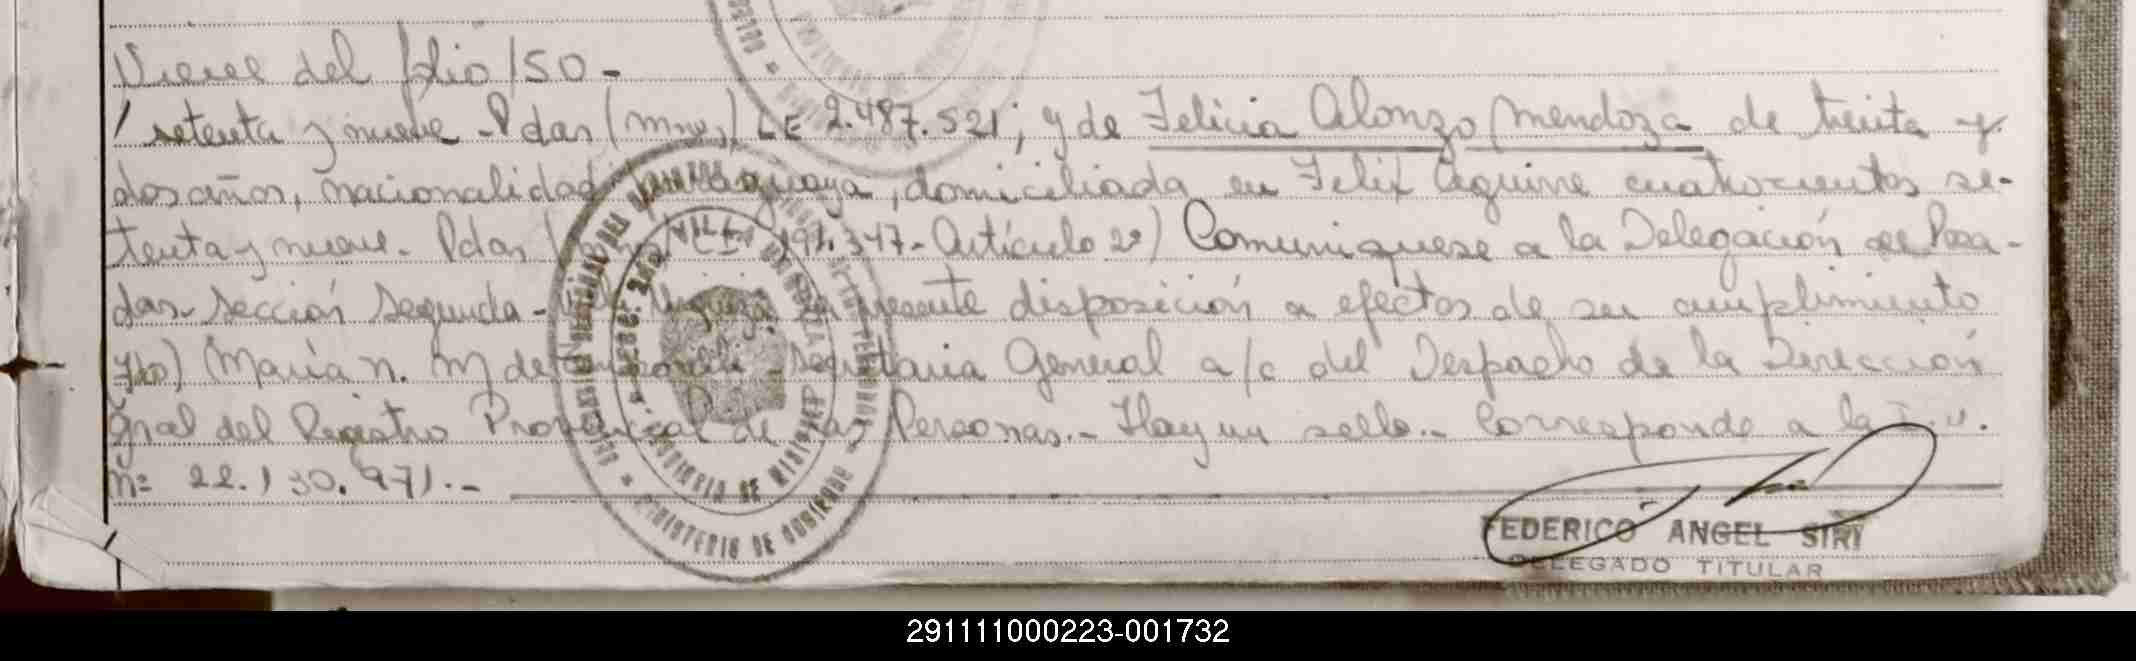 Viene del folio 150-
/ setenta y nueve - Pdas (mnes) LE 2.487.521; y de Felicia Alonzo Mendoza de treinta y
dos años, nacionalidad paraguaya, domiciliada en Felix Aguirre cuatrocientos se-
tenta y nueve - Pdas 347- Artículo 2º) Comuniquese a la Delegación de Posa-
das- Sección Segunda - presente disposición a efectos de su cumplimiento
Fdo) María N. M de Secretaria General a/c del Despacho de la Dirección
Gral del Registro Provincial de las Personas.- Hay un sello.- Corresponde a la I.U.
Nº 22.130.971.-
MINISTERIO DE GOBIERNO
PROVINCIA DE MISIONES
FEDERICO ANGEL SIRI
DELEGADO TITULAR
291111000223-001732